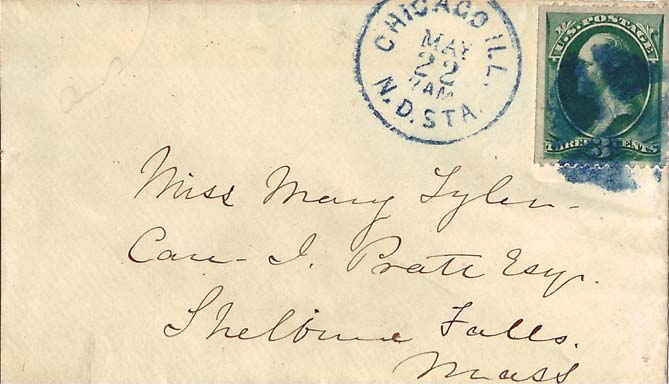 CHICAGO ILL.
MAY
22
7AM
N.D.STA.
U.S. POSTAGE
THREE 3 CENTS
Miss Mary Tyler
Care I. Pratt Esq.
Shelburne Falls.
Mass